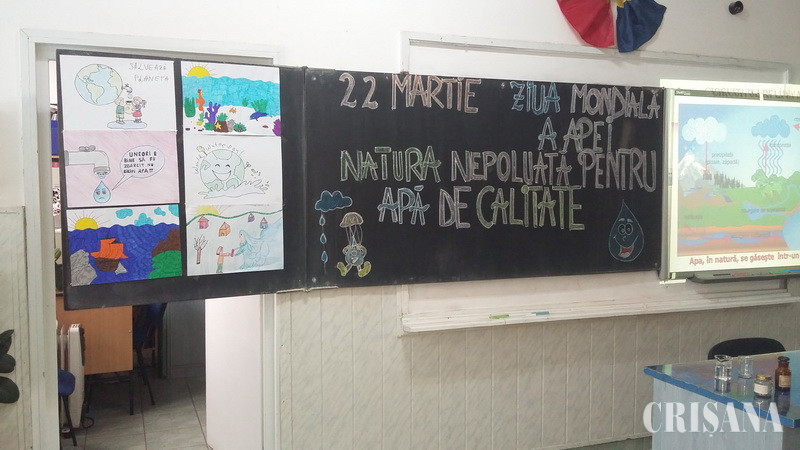 SALVEAZĂ
PLANETA
UNEORI E
BINE SĂ FII
ZGÂRCIT. NU
RISIPI APA!!!
22 MARTIE ZIUA MONDIALĂ
A APEI
NATURA NEPOLUATĂ PENTRU
APĂ DE CALITATE
Apa, în natură, se găsește într-un
CRIȘANA